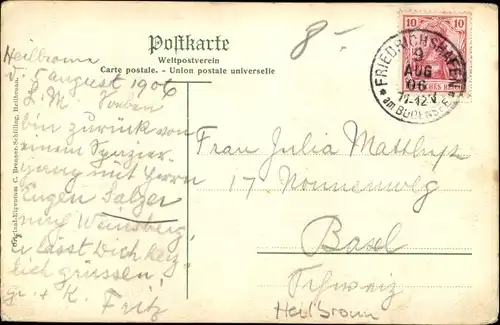 Postkarte
Weltpostverein
Carte postale. - Union postale universelle
8-
10 10
FRIEDRICHSHAFEN
9
AUG
06
11-12V
* am BODENSEE
Heilbronn
d. 5 august 1906
L. M. Soeben
bin zurück von
einem Spazier-
gang mit Herrn
Eugen Salzer
auf Weinsberg
er lässt Dich herz
lich grüssen,
gr. + K. Fritz
Frau Julia Matthys
17. Nonnenweg
Basel
Schweiz
Heilbronn